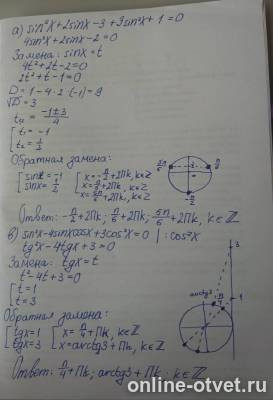 а) sin²x+2sinx-3+3sin²x+1=0
4sin²x+2sinx-2=0
Замена: sinx=t
4t²+2t-2=0
2t²+t-1=0
D=1-4·2·(-1)=9
√D=3
t₁,₂=(-1±3)/4
[t₁=-1
[t₂=1/2
Обратная замена:
[sinx=-1 [x=-π/2+2πk, k∈Z
[sinx=1/2 [x=π/6+2πk, k∈Z
[x=5π/6+2πk, k∈Z
5π/6
π/6
Ответ: -π/2+2πk; π/6+2πk; 5π/6+2πk, k∈Z
в) sin²x-4sinxcosx+3cos²x=0 |:cos²x
tg²x-4tgx+3=0
Замена: tgx=t
t²-4t+3=0
[t=1
[t=3
Обратная замена:
[tgx=1 [x=π/4+πk, k∈Z
[tgx=3 [x=arctg3+πk, k∈Z
3
1
arctg3
π/4
Ответ: π/4+πk; arctg3+πk, k∈Z
online-otvet.ru